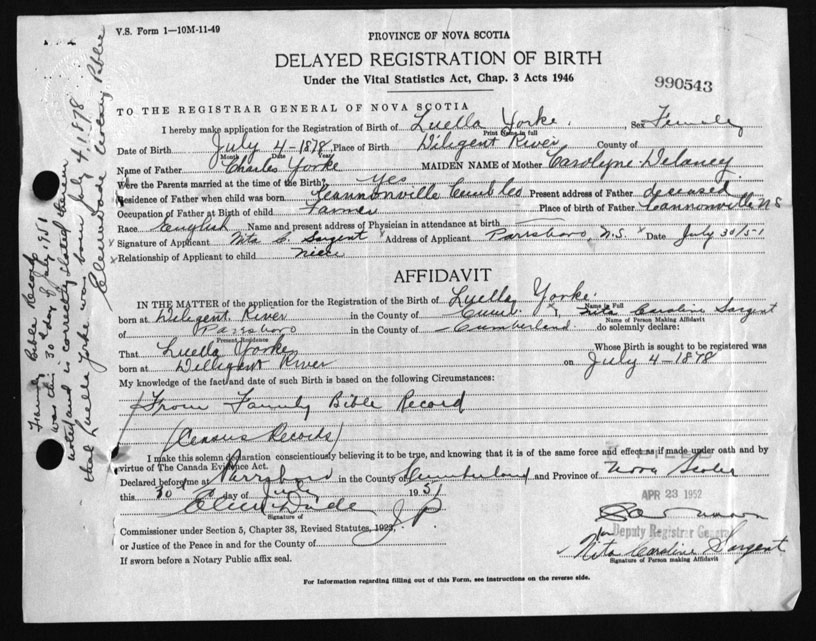 V.S. Form 1—10M-11-49
PROVINCE OF NOVA SCOTIA
DELAYED REGISTRATION OF BIRTH
Under the Vital Statistics Act, Chap. 3 Acts 1946
990543
TO THE REGISTRAR GENERAL OF NOVA SCOTIA
I hereby make application for the Registration of Birth of Luella Yorke. Sex Female
Print Name in full
Date of Birth July 4-1878 Place of Birth Diligent River County of
Month Date Year
Name of Father Charles Yorke MAIDEN NAME of Mother Carolyne Delaney
Were the Parents married at the time of the Birth? Yes
Residence of Father when child was born Present address of Father deseased
Occupation of Father at Birth of child Farmer Place of birth of Father Cannonville NS
Race English Name and present address of Physician in attendance at birth
Signature of Applicant Nita C. Sargent Address of Applicant Parrsboro, N.S. Date July 30/51
Relationship of Applicant to child niece
AFFIDAVIT
IN THE MATTER of the application for the Registration of the Birth of Luella Yorke
Name in Full
born at Diligent River in the County of Cumb. I, Nita Caroline Sargent
Name of Person Making Affidavit
of Parrsboro in the County of Cumberland do solemnly declare:
Present Residence
That Luella Yorke Whose Birth is sought to be registered was
born at Dilligent River on July 4-1878
My knowledge of the fact and date of such Birth is based on the following Circumstances:
From Family Bible Record
(Census Records)
I make this solemn declaration conscientiously believing it to be true, and knowing that it is of the same force and effect as if made under oath and by
virtue of The Canada Evidence Act.
Declared before me at Parrsboro in the County of Cumberland and Province of Nova Scotia
this 30 day of July 1951
APR 23 1952
Glenn Dade J P
Signature of
Commissioner under Section 5, Chapter 38, Revised Statutes, 1923,
or Justice of the Peace in and for the County of
for Deputy Registrar General
Nita Caroline Sargent
Signature of Person making Affidavit
If sworn before a Notary Public affix seal.
For Information regarding filling out of this Form, see instructions on the reverse side.
Family Bible Record
was this 30 day of July, 1951
and is correctly stated therein
that Luella Yorke was born July 4, 1878